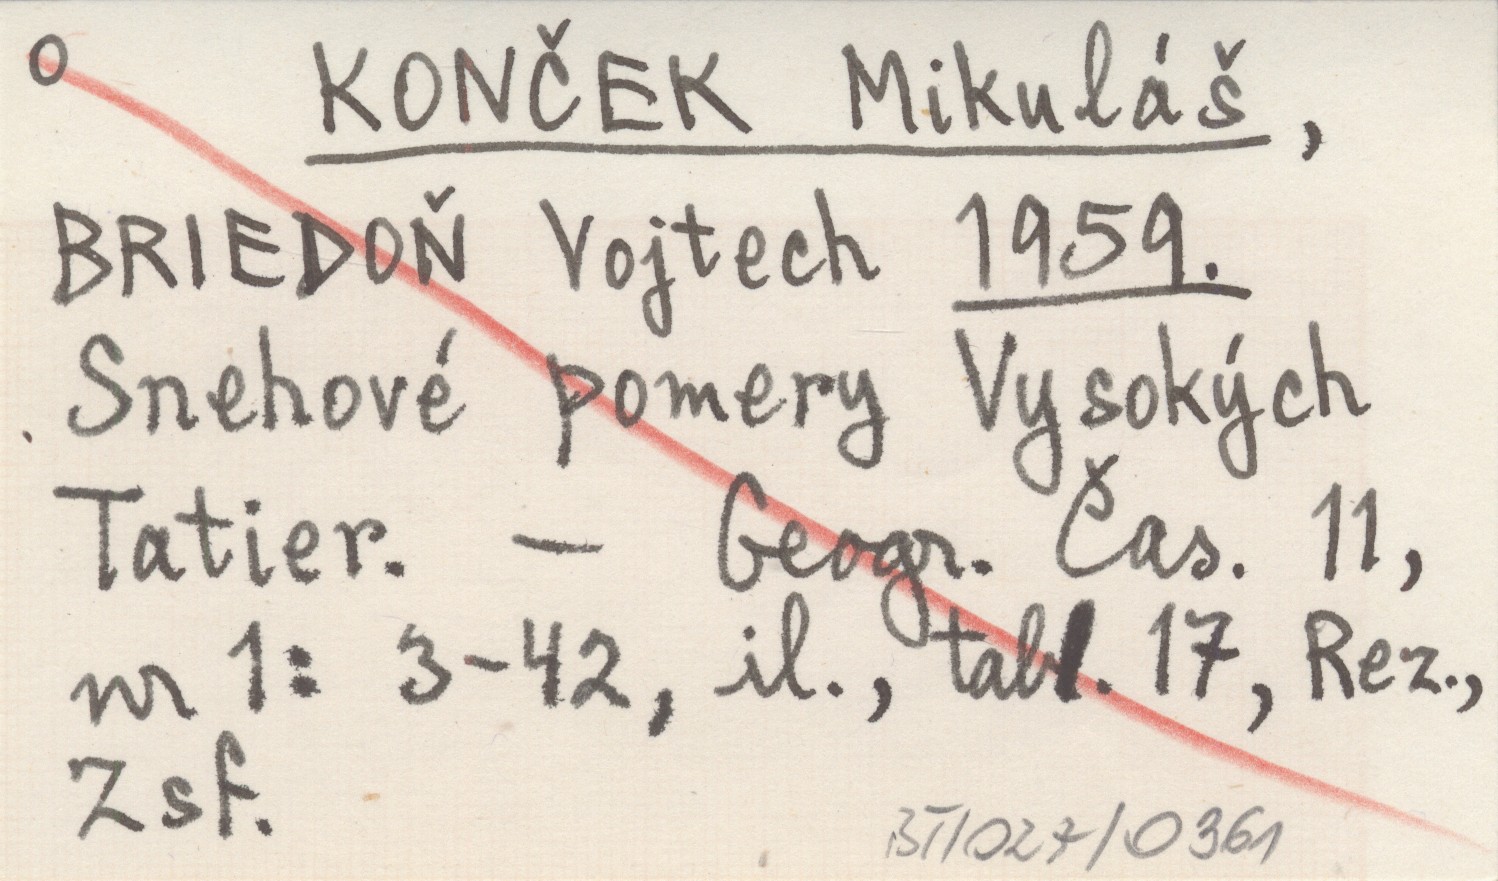 o KONČEK Mikuláš,
BRIEDOŇ Vojtech 1959.
Snehové pomery Vysokých
Tatier. — Geogr. Čas. 11,
nr 1: 3-42, il., tabl. 17, Rez.,
Zsf.
BT/027/0361